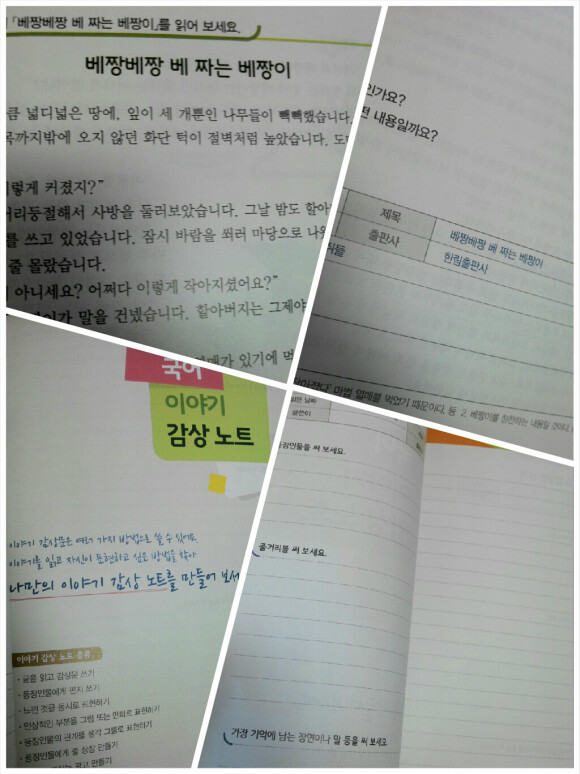 「베짱베짱 베 짜는 베짱이」를 읽어 보세요.
베짱베짱 베 짜는 베짱이
큼 넓디넓은 땅에, 잎이 세 개뿐인 나무들이 빽빽했습니다.
목까지밖에 오지 않던 화단 턱이 절벽처럼 높았습니다.
이렇게 커졌지?"
거리둥절해서 사방을 둘러보았습니다. 그날 밤도
를 쓰고 있었습니다. 잠시 바람을 쐬러 마당으로
줄 몰랐습니다.
아니세요? 어쩌다 이렇게 작아지셨어요?"
말을 건넸습니다. 할아버지는 그제야
있기에
인가요?
내용일까요?
제목
베짱베짱 베 짜는 베짱이
출판사
한림출판사
마법 열매를 먹었기 때문이다. 등 2. 베짱이를 칭찬하는 내용일 것이다.
국어
이야기
감상 노트
이야기 감상문은 여러 가지 방법으로 쓸 수 있어요.
이야기를 읽고 자신이 표현하고 싶은 방법을 찾아
나만의 이야기 감상 노트를 만들어 보세
이야기 감상 노트 종류
• 글을 읽고 감상문 쓰기
• 등장인물에게 편지 쓰기
• 느낀 것을 동시로 표현하기
• 인상적인 부분을 그림 또는 만화로 표현하기
• 등장인물의 관계를 생각 그물로 표현하기
• 등장인물에게 줄 상장 만들기
광고 만들기
읽은 날짜
글쓴이
등장인물을 써 보세요.
줄거리를 써 보세요.
가장 기억에 남는 장면이나 말 등을 써 보세요